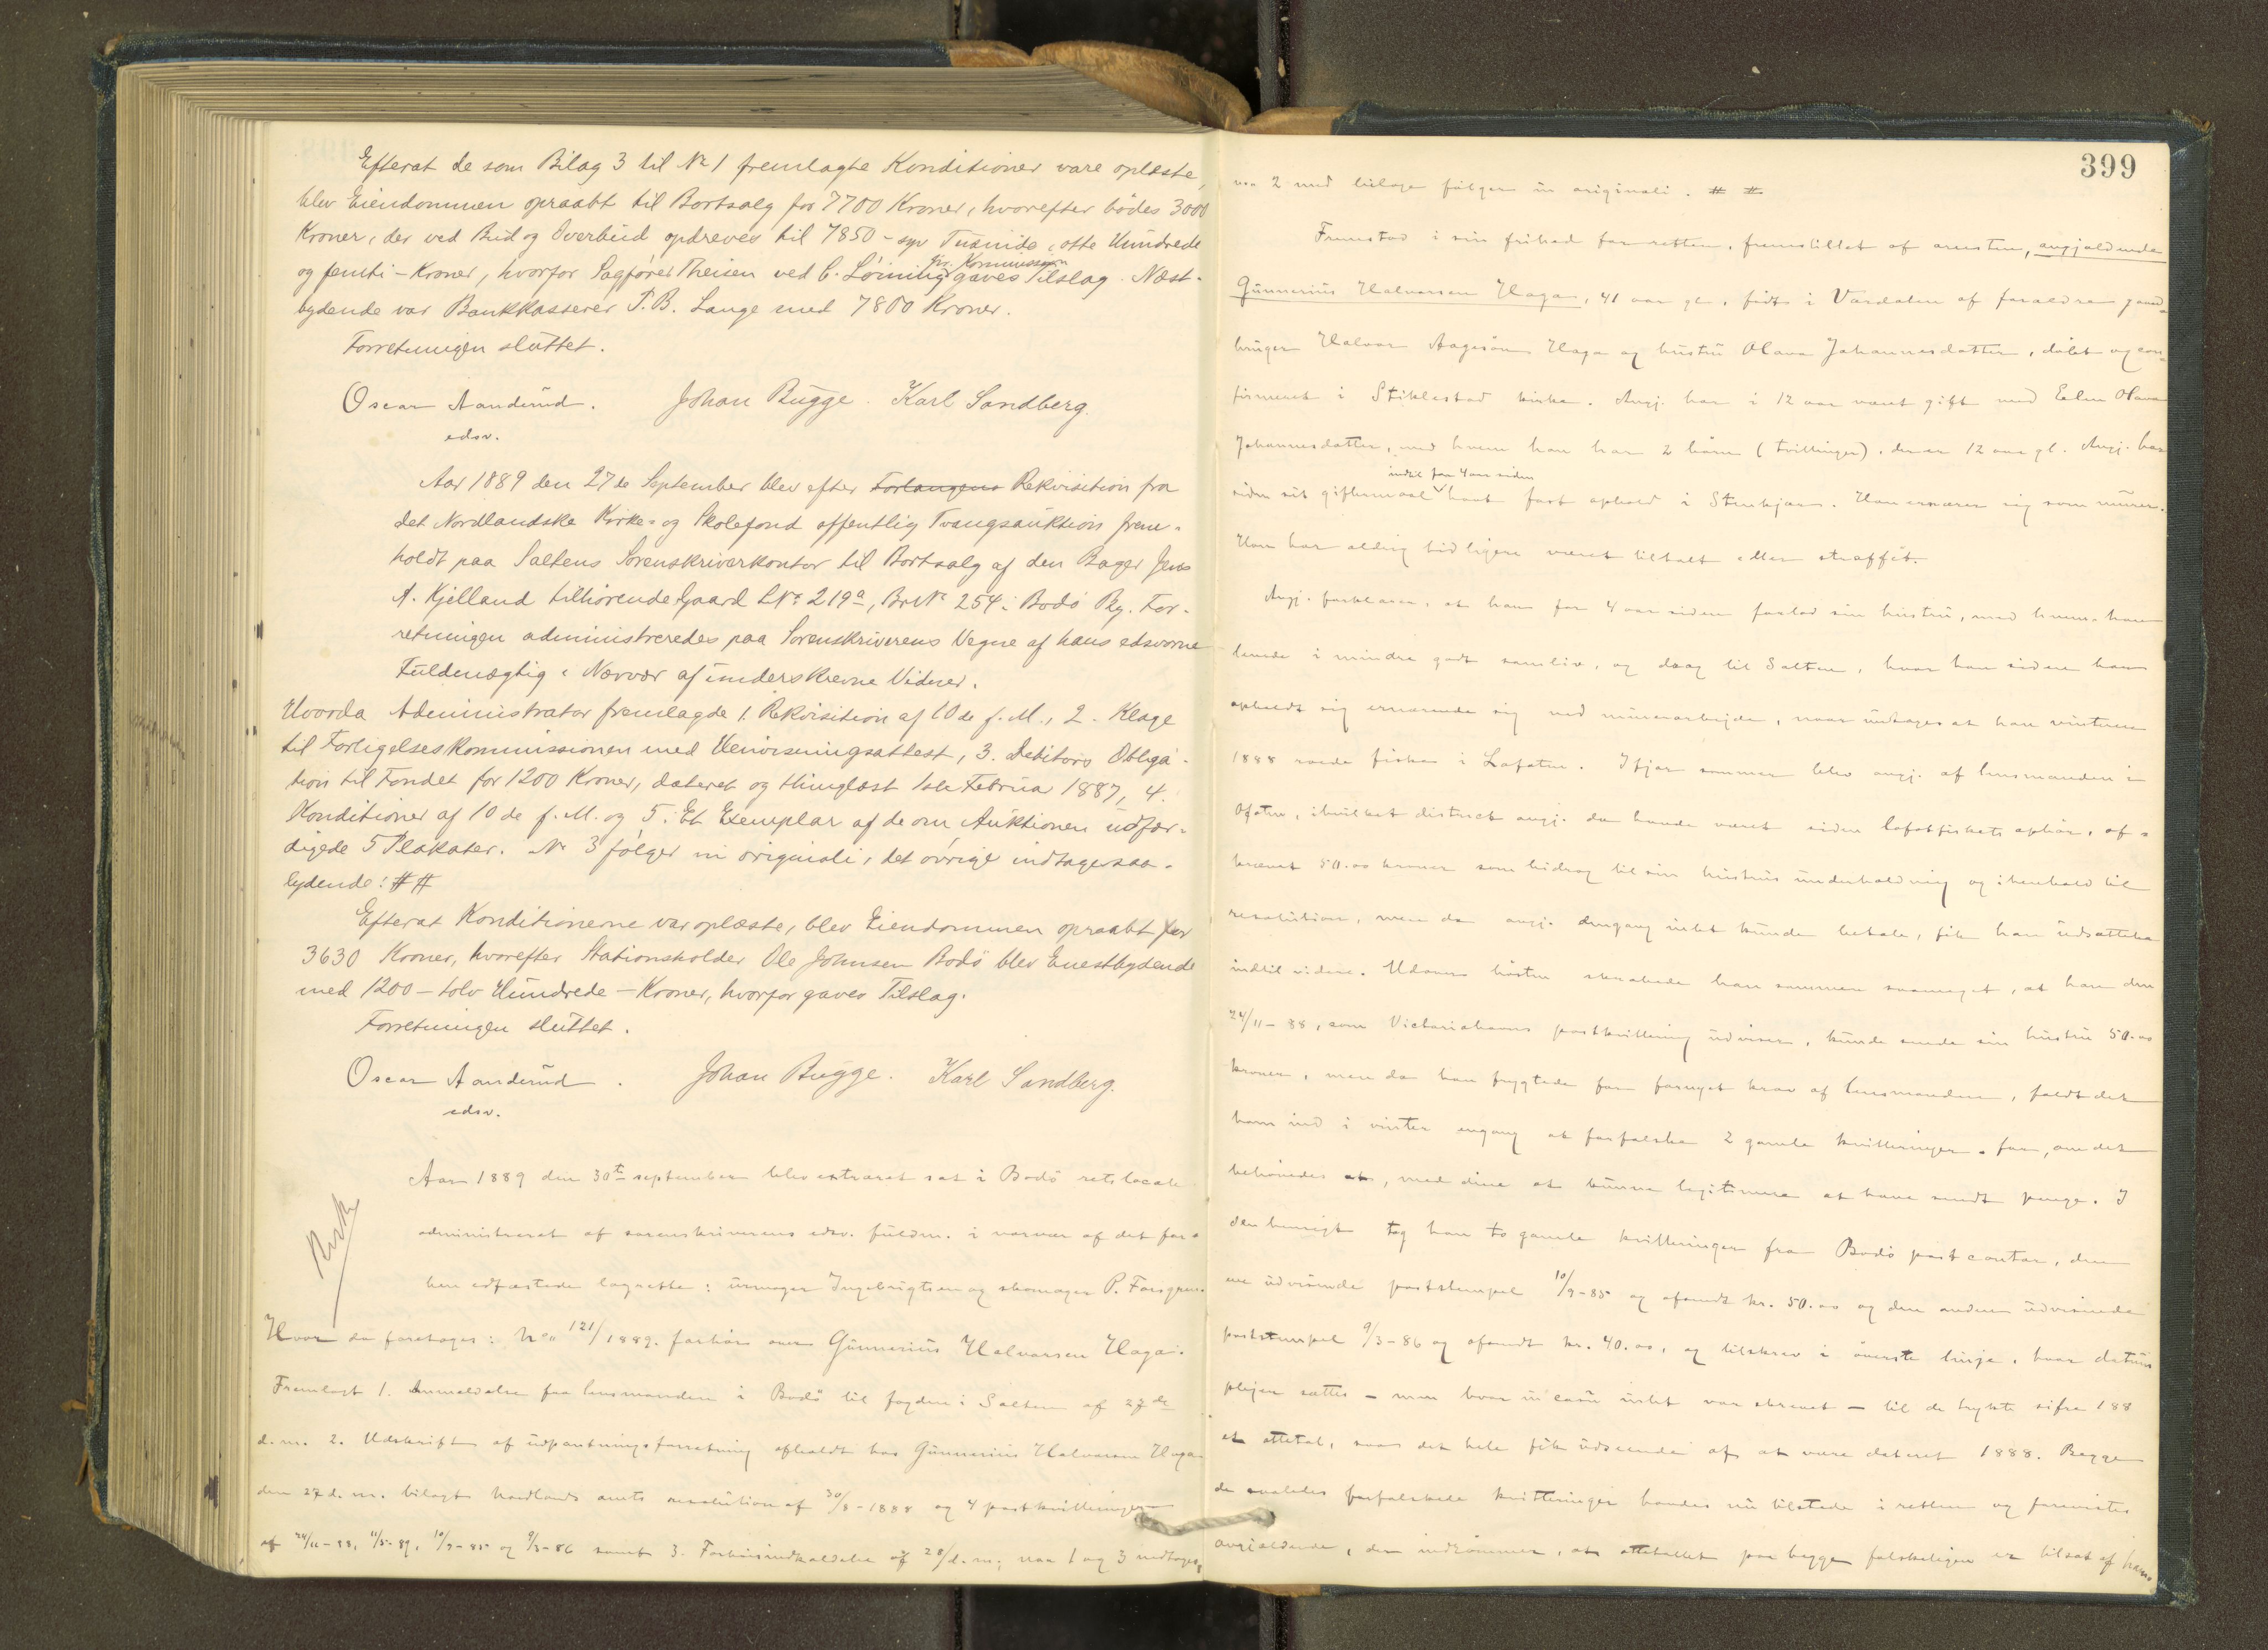 Efterat de som Bilag 3 til No 1 fremlagte Konditioner vare oplæste,
blev Eiendommen opraabt til Bortsalg for 7700 Kroner, hvorefter bødes 3000
Kroner, der ved Bud og Overbud opdreves til 7850 - syv Tusinde, otte Hundrede
og femti - Kroner, hvorfor Sagfører Theisen ved C. Løining gaves Tilslag. Næst-
bydende var Bankkasserer P. B. Lange med 7800 Kroner.
Forretningen sluttet.
Oscar Aanderud. Johan Bugge. Karl Sandberg.
edsv.
Aar 1889 den 27de September blev efter Forlangens Rekvisition fra
det Nordlandske Kirke- og Skolefond offentlig Tvangsauktion frem-
holdt paa Saltens Sorenskriverkontor til Bortsalg af den Bager Jens
A. Kjelland tilhørende Gaard LNo 219a, BrNo 254 i Bodø By. For-
retningen administreredes paa Sorenskriverens Vegne af hans edsvorne
Fuldmægtig i Nærvær af underskrevne Vidner.
Hvorda Administrator fremlagde 1. Rekvisition af 10de f. M., 2. Klage
til Forligelseskommissionen med Henvisningsattest, 3. Debitors Obliga-
tion til Fondet for 1200 Kroner, dateret og thinglæst 1ste Februar 1887, 4.
Konditioner af 10de f. M. og 5. Et Exemplar af de om Auktionen udfær-
digede 5 Plakater. No 3 følger in originali, det øvrige indtages saa-
lydende: # #
Efterat Konditionerne var oplæste, blev Eiendommen opraabt for
3630 Kroner, hvorefter Stationsholder Ole Johnsen Bodø blev Enestbydende
med 1200 - tolv Hundrede - Kroner, hvorfor gaves Tilslag.
Forretningen sluttet.
Oscar Aanderud. Johan Bugge. Karl Sandberg.
edsv.
Aar 1889 den 30te september blev extraret sat i Bodø retslocale
administreret af sorenskriverens edsv. fuldm. i nærvær af det for-
hen edfæstede lagrette: urmager Ingebrigtsen og skomager P. Forsgren.
Hvor da foretoges: No 121/1889. forhør over Gunnerius Halvorsen Haga.
Fremlagt 1. Anmeldelse fra lensmanden i Bodø til fogden i Salten af 27de
d. m. 2. Udskrift af udpantningsforretning afholdt hos Gunnerius Halvorsen Haga
den 27 d. m. bilagt Nordlands amts resolution af 30/8-1888 og 4 postkvitteringer
af 24/11-88, 11/5-89, 10/9-85 og 9/3-86 samt 3. Forhørsindkaldelse af 28/d. m.; naa 1 og 3 indtages,
399
naa 2 med bilage følger in originali. # #
Fremstod i sin frihed for retten, fremstillet af arresten, angjældende
Gunnerius Halvorsen Haga, 41 aar gl., født i Værdalen af forældre gaard-
bruger Halvor Aagesøn Haga og hustru Olava Johannesdatter, døbt og con-
firmeret i Stiklestad kirke. Angj. har i 12 aar været gift med Elen Olava
Johannesdatter, med hvem han har 2 børn (tvillinger), der er 12 aar gl. Angj. har
indtil for 4 aar siden
siden sit giftermaal havt fast ophold i Stenkjær. Han ernærer sig som murer.
Han har aldrig tidligere været tiltalt eller straffet.
Angj. forklarer, at han for 4 aar siden forlod sin hustru, med hvem han
levede i mindre godt samliv, og drog til Salten, hvor han siden har
opholdt sig ernærende sig ved murerarbejde, naar undtages at han vinteren
1888 roede fiske i Lofoten. Ifjor sommer blev angj. af lensmanden i
Ofoten, i hvilket district angj. da havde været siden lofotfiskets ophør, af-
krævet 50.00 kroner som bidrag til sin hustrus underholdning og i henhold til
resolution, men da angj. dengang intet kunde betale, fik han udsættelse
indtil videre. Udover høsten skrabede han sammen saameget, at han den
24/11-88, som Victoriahavns postkvittering udviser, kunde sende sin hustru 50.00
kroner, men da han frygtede for fornyet krav af lensmanden, faldt det
ham ind i vinter engang at forfalske 2 gamle kvitteringer for, om det
behøvedes, med dem at kunne legitimere at have sendt penge. I
den hensigt tog han to gamle kvitteringer fra Bodø postcontor, den
ene udvisende poststempel 10/9-85 og afsendt kr. 50.00 og den anden udvisende
poststempel 9/3-86 og afsendt kr. 40.00, og tilskrev i øverste linje, hvor datum
plejer sættes - men hvor in casu intet var skrevet - til de trykte sifre 188
et ottetal, saa det hele fik udseende af at være dateret 1888. Begge
de saaledes forfalskede kvitteringer havdes nu tilstede i retten og forevistes
angjældende, der indrømmer, at ottetallet paa begge falskeligen er tilsat af ham.